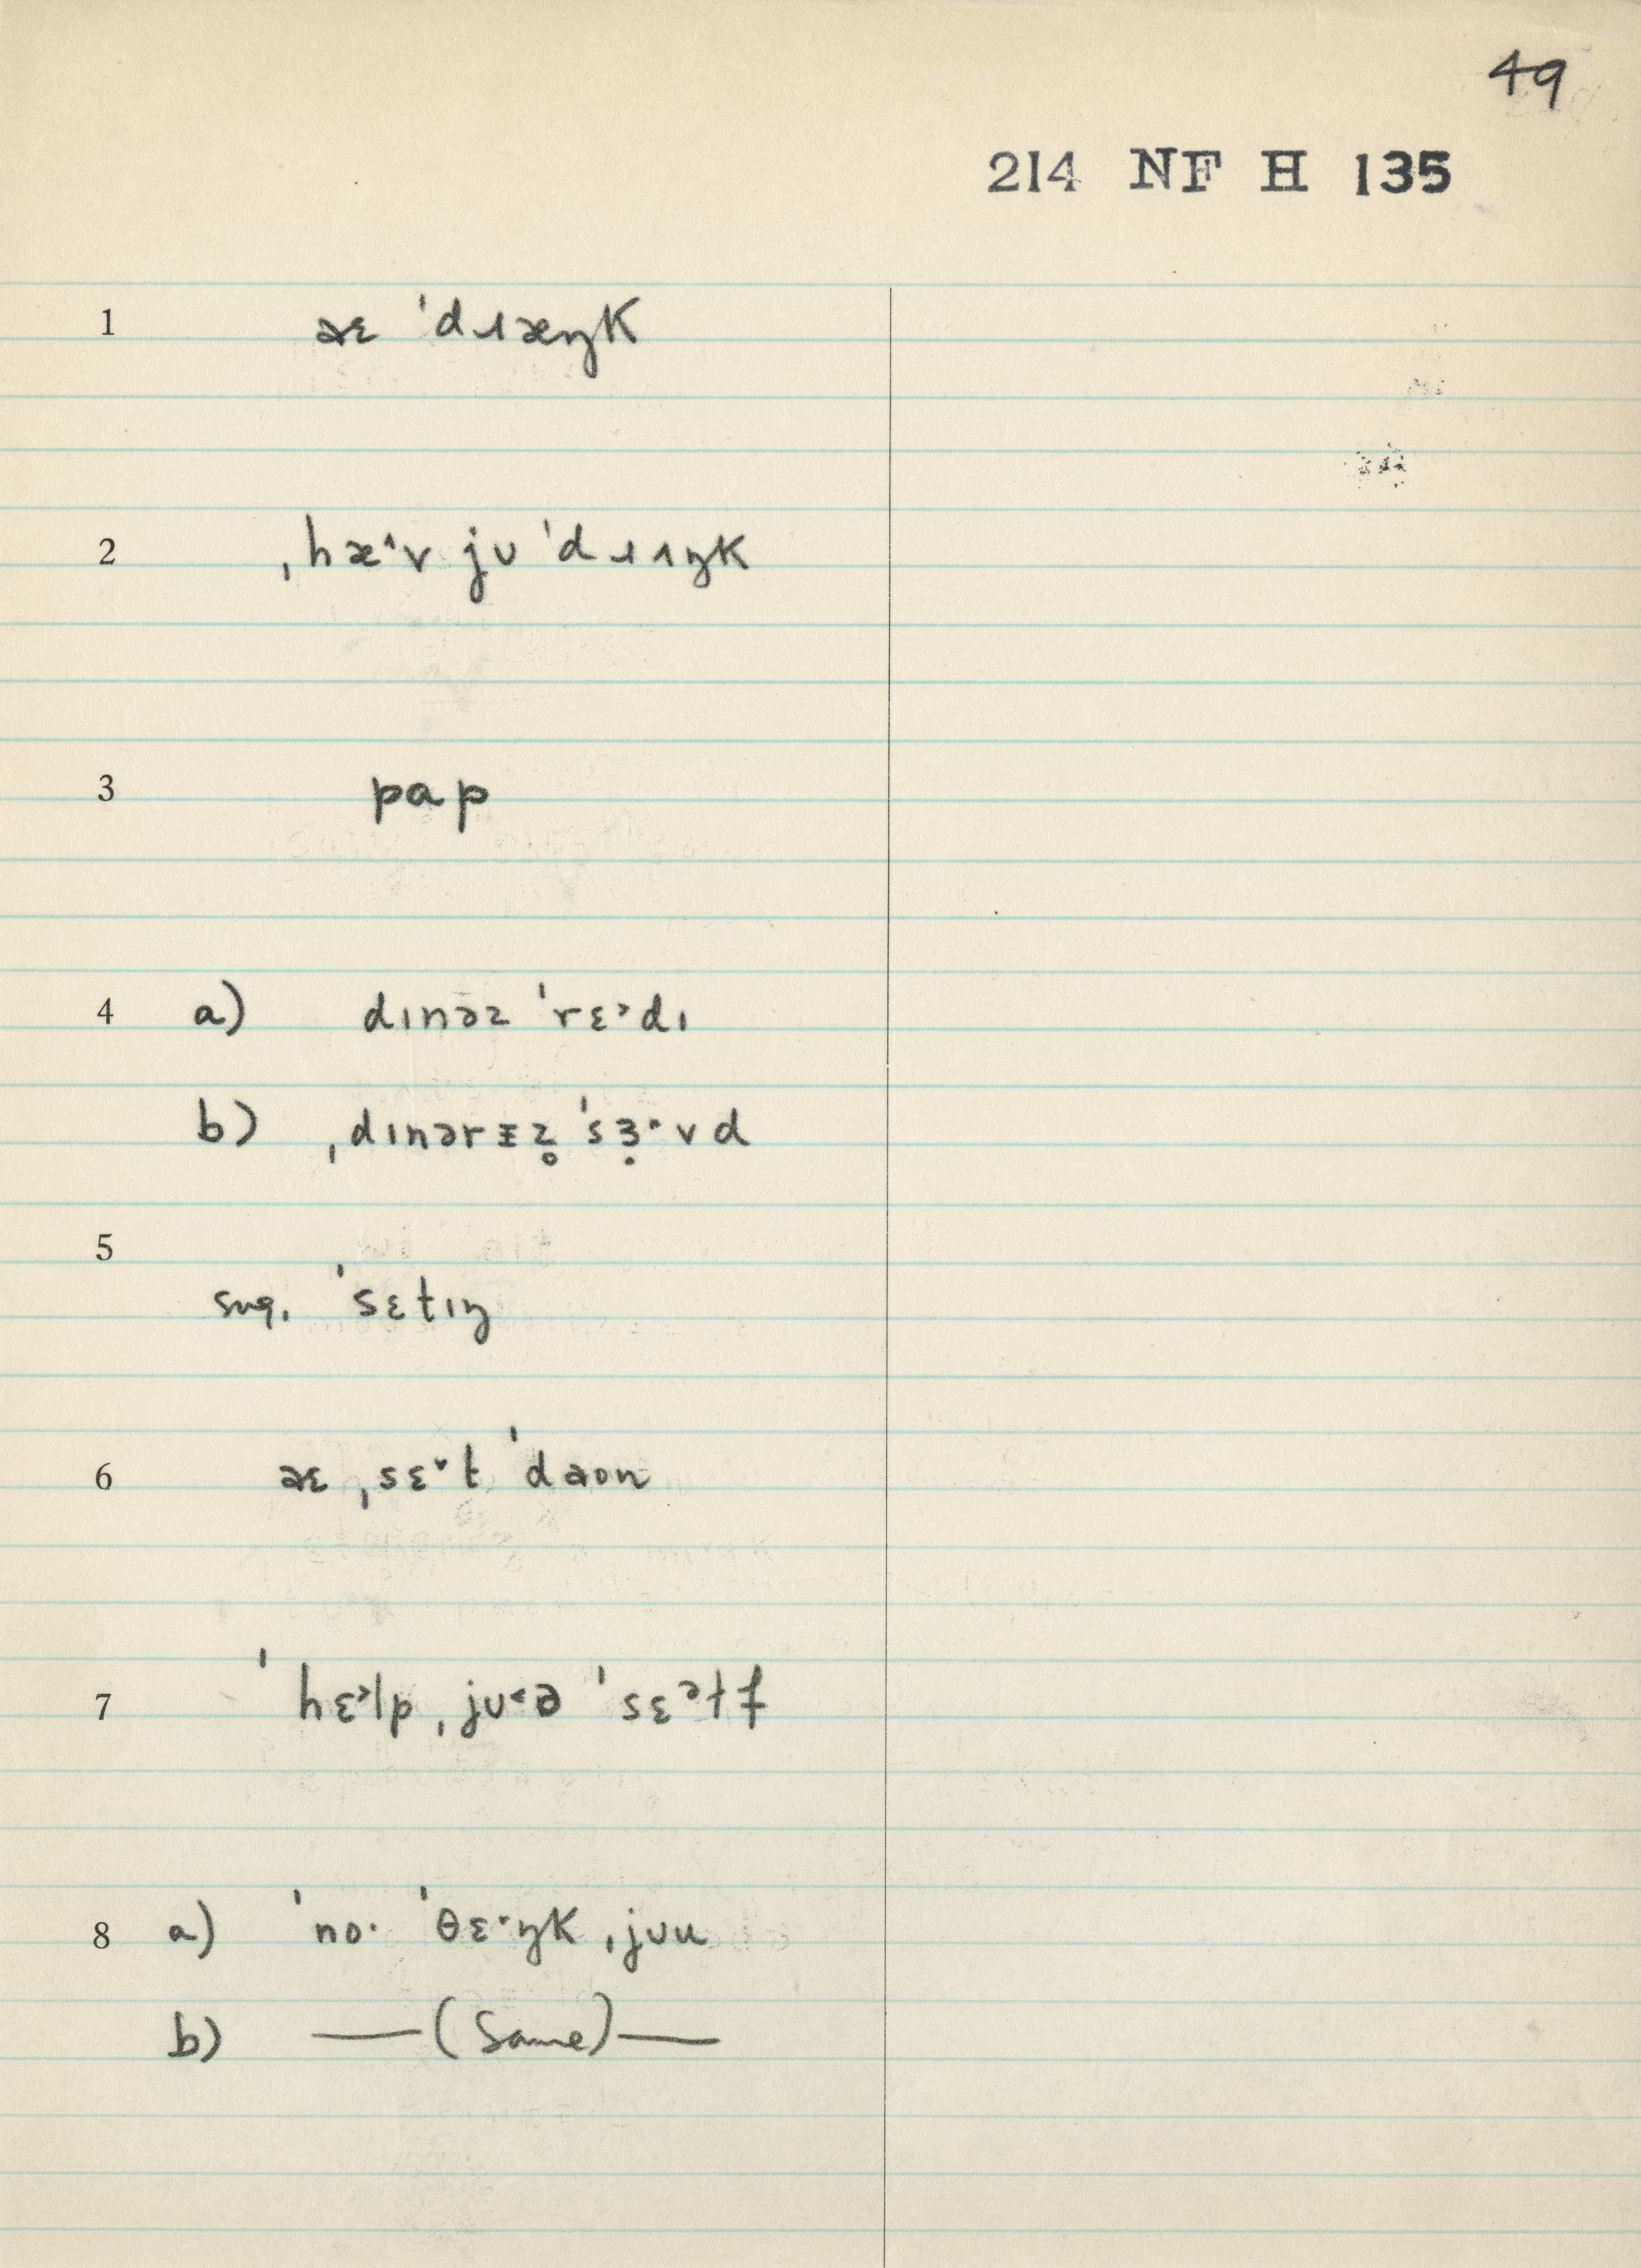 49
214 NF H 135
1 aɛ ˈdɹæŋk
2 ˌhæ˄v ju ˈdɹʌŋk
3 pap
4 a) dɪnəz ˈrɛ˃dɪ
b) ˌdɪnərɪz̥ ˈsɜ̣·vd
5
sug. ˈsɛtɪŋ
6 aɛ ˌsɛ˅t ˈdaʊn
7 ˈhɛ˃lp ˌjʊ˂ə ˈsɛᵊɫf
8 a) ˈno· ˈθɛ·ŋk ˌjʊu
b) —(Same)—